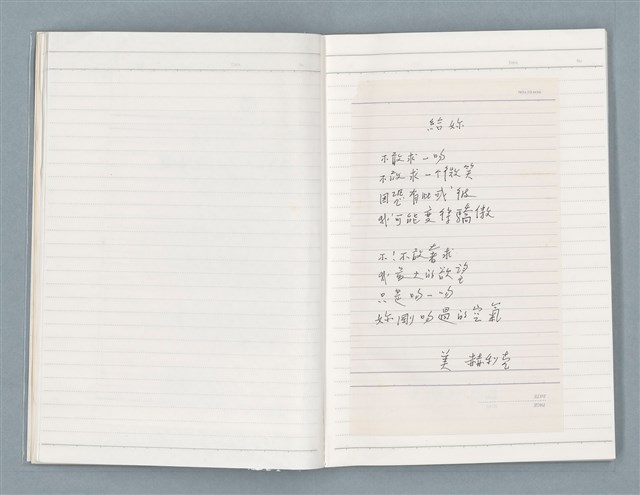 給妳
不敢求一吻
不敢求一個微笑
因恐有此或彼
我可能變得驕傲
不！不敢奢求
我最大的欲望
只是吻一吻
妳剛吻過的空氣
美 赫利克